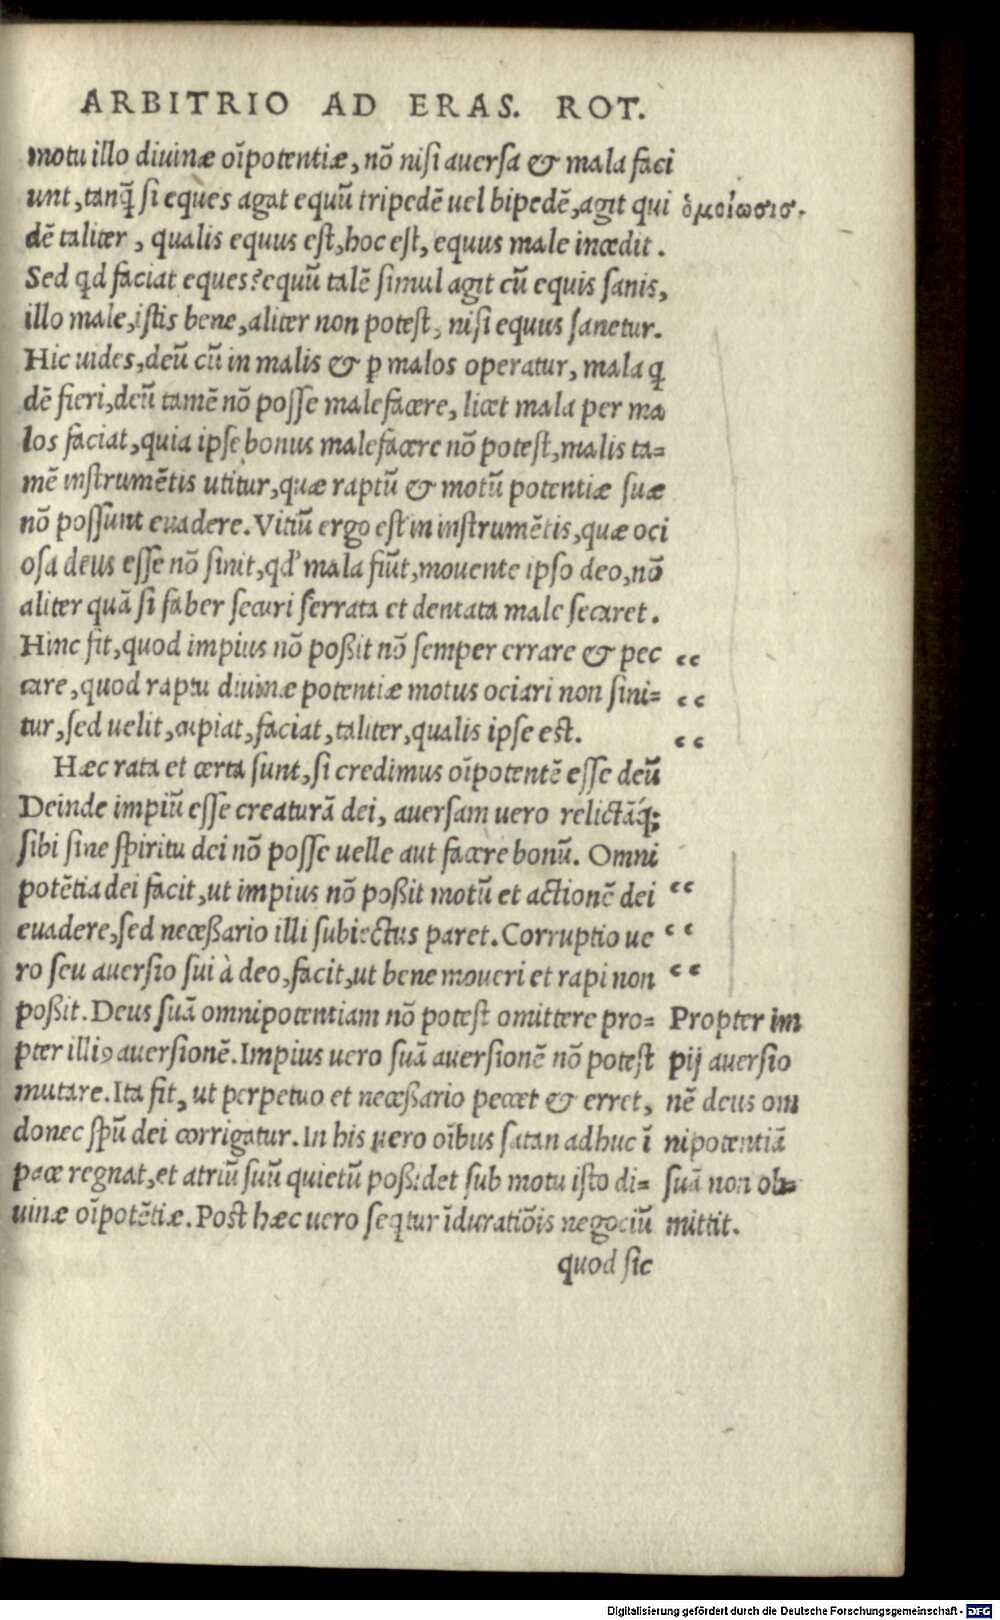 ARBITRIO AD ERAS. ROT.
motu illo divinæ oīpotentiæ, nō nisi aversa & mala faci
unt, tanq̄ si eques agat equū tripedē vel bipedē, agit qui
dē taliter, qualis equus est, hoc est, equus male incedit.
Sed qd faciat eques? equū talē simul agit cū equis sanis,
illo male, istis bene, aliter non potest, nisi equus sanetur.
Hic vides, deū cū in malis & ꝑ malos operatur, mala q̄
dē fieri, deū tamē nō posse male facere, licet mala per ma
los faciat, quia ipse bonus male facere nō potest, malis ta=
mē instrumētis utitur, quæ raptū & motū potentiæ suæ
nō possunt evadere. Vitiū ergo est in instrumētis, quæ oci
osa deus esse nō sinit, qd' mala fiūt, movente ipso deo, nō
aliter quā si faber securi serrata et dentata male secaret.
Hinc fit, quod impius nō poßit nō semper errare & pec
care, quod raptu divinæ potentiæ motus ociari non sini=
tur, sed velit, cupiat, faciat, taliter, qualis ipse est.
Hæc rata et certa sunt, si credimus oīpotentē esse deū
Deinde impiū esse creaturā dei, aversam vero relictāq́;
sibi sine spiritu dei nō posse velle aut facere bonū. Omni
potētia dei facit, ut impius nō poßit motū et actionē dei
evadere, sed neceßario illi subiectus paret. Corruptio ve
ro seu aversio sui à deo, facit, ut bene moveri et rapi non
poßit. Deus suā omnipotentiam nō potest omittere pro=
pter illiꝰ aversionē. Impius vero suā aversionē nō potest
mutare. Ita fit, ut perpetuo et neceßario peccet & erret,
donec spū dei corrigatur. In his vero oībus satan adhuc ī
pace regnat, et atriū suū quietū poßidet sub motu isto di=
vinæ oīpotētiæ. Post hæc vero seq̄tur īduratiōis negociū
quod sic
ὁμοίωσισ.
“
“
“
“
“
“
Propter im
pij aversio
nē deus om
nipotentiā
suā non ob=
mittit.
Digitalisierung gefördert durch die Deutsche Forschungsgemeinschaft - DFG